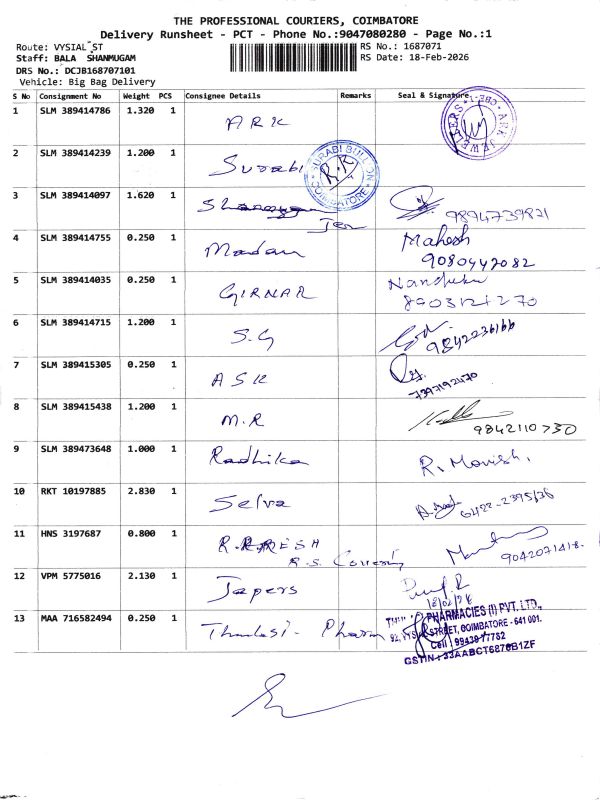 THE PROFESSIONAL COURIERS, COIMBATORE
Delivery Runsheet - PCT - Phone No.:9047080280 - Page No.:1
Route: VYSIAL ST
Staff: BALA SHANMUGAM
DRS No.: DCJB168707101
Vehicle: Big Bag Delivery
RS No.: 1687071
RS Date: 18-Feb-2026
S No Consignment No Weight PCS Consignee Details Remarks Seal & Signature
1 SLM 389414786 1.320 1 ARK
CBE-1 ARK JEWELLERS
2 SLM 389414239 1.200 1 Surabi
SURABI BULLION COIMBATORE R.K
3 SLM 389414097 1.620 1 9894739821
4 SLM 389414755 0.250 1 Madan Mahesh
9080447082
5 SLM 389414035 0.250 1 GIRNAR
6 SLM 389414715 1.200 1 S.G 9842236166
7 SLM 389415305 0.250 1 ASK
7397192470
8 SLM 389415438 1.200 1 M.R
9842110730
9 SLM 389473648 1.000 1 Radhika R. Monish.
10 RKT 10197885 2.830 1 Selva
11 HNS 3197687 0.800 1
R.S.
9042071418.
12 VPM 5775016 2.130 1 Japers
18/02/26
13 MAA 716582494 0.250 1 Thulasi - Pharm
PHARMACIES (I) PVT. LTD.,
STREET, COIMBATORE - 641 001.
Cell : 9943977782
GSTIN : 33AABCT6876B1ZF